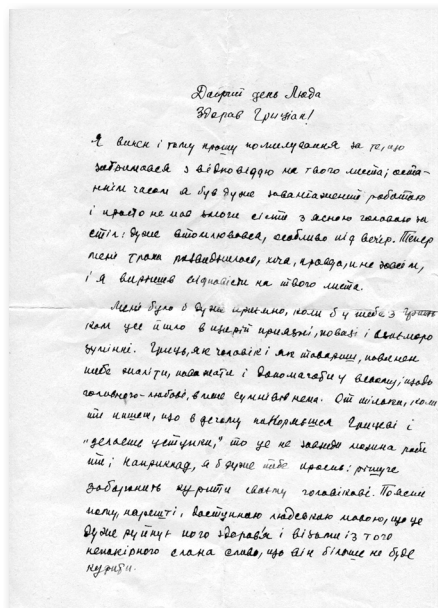 Добрий день Люда
Здрав Грицian!
Я винен і тому прошу помилування за те, що
затримався з відповіддю на твого листа; оста-
ннім часом я був дуже завантажений работою
і просто не мав змоги сісти з ясною головою за
стіл: дуже втомлювався, особливо під вечір. Тепер
мені трохи розвиднілося, хоча, правда, и не зовсім,
і я вирішив відповісти на твого листа.
Мені було б дуже приємно, коли б у тебе з Гриць-
ком усе йшло в щирій приязні, повазі і
зумінні. Гриць, як чоловік і як товариш, повинен
тебе жаліти, поважати і допомагати у всьому; щодо
головного - любові, в мене сумнівів нема. От тільки, коли
ти пишеш, що в дечому Грицеві і
„делаеш уступки," то це не завжди можна роби
ти; Наприклад, я б дуже тебе просив: рішуче
заборонить курити своєму чоловікові. Поясни
йому, нарешті, доступною людською мовою, що це
дуже руйнує його здоров'я і візьми із того
непокірного слана слово, що він більше не буде
курити.